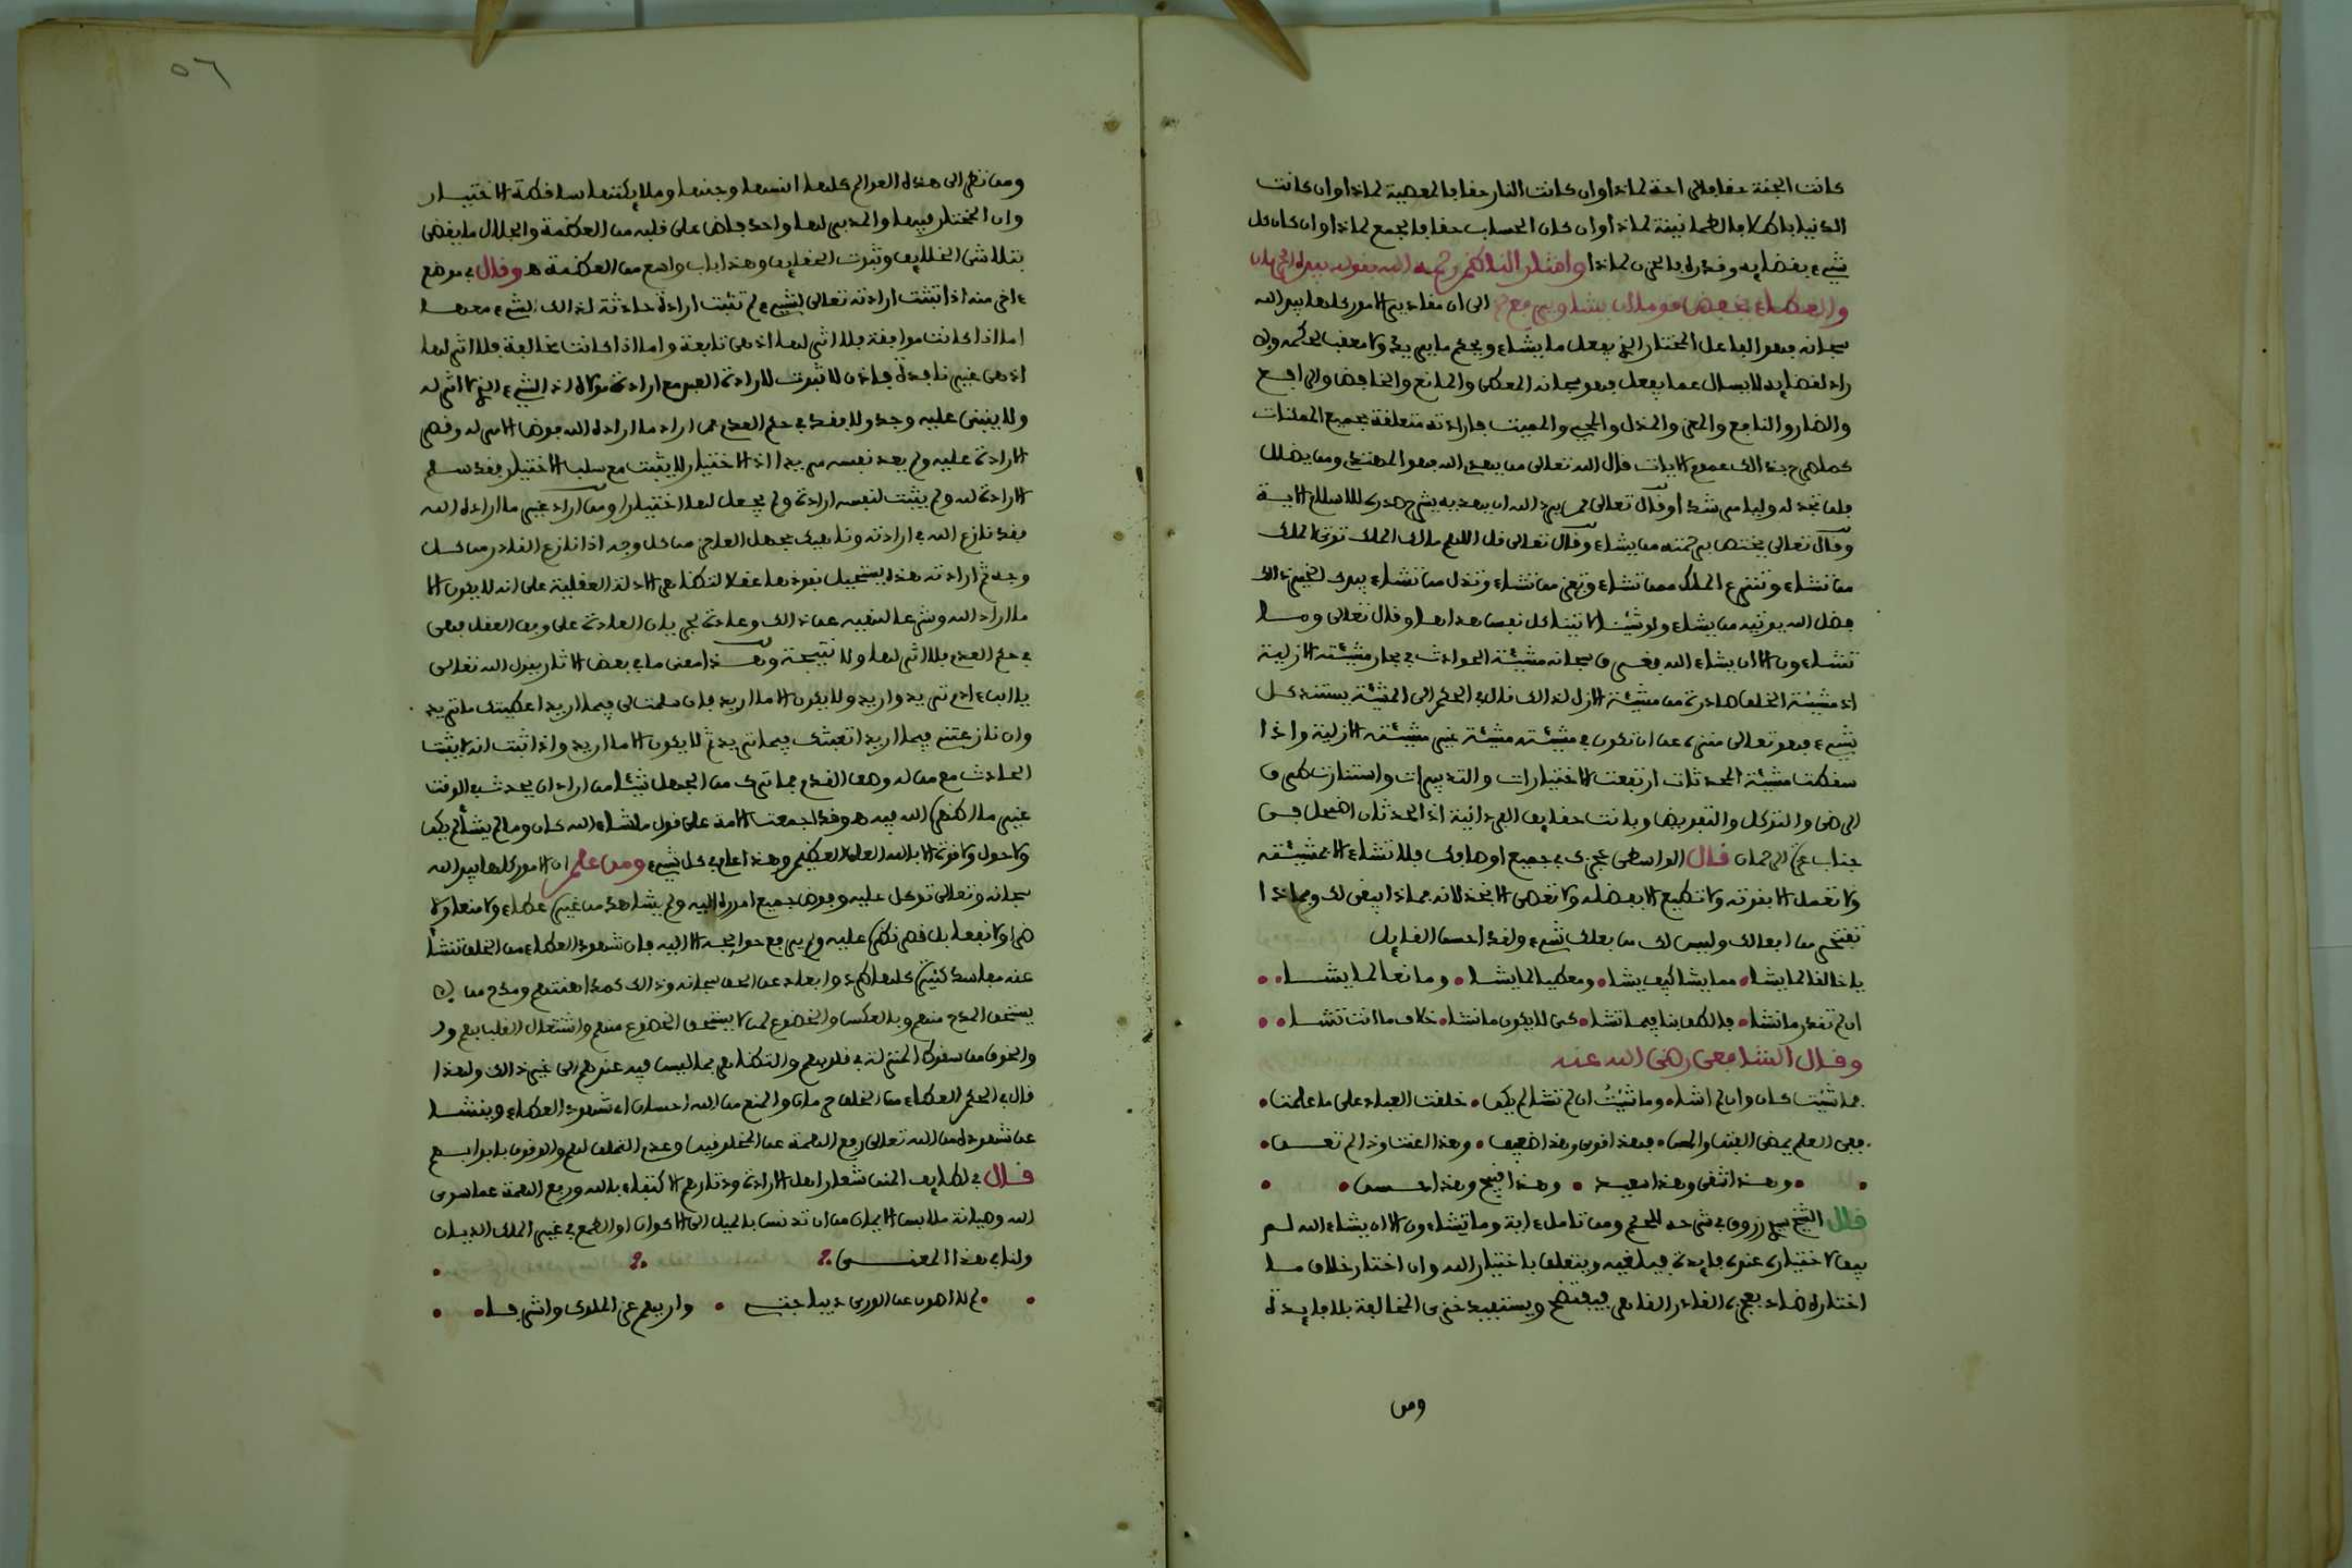 كانت الجنة حقا فالراحة لماذا وان كانت النار حقا فالمعصية لماذا وان كانت
الدنيا باطلا فالطمانينة لماذا وان كان الحساب حقا فالجمع لماذا وان كان كل
شيء بقضايه وقدره فالحزن لماذا واشار الناظم رحمه الله بقوله بيده الحرمان
والعطاء يخفض قوما ان يشا ويرفع الى ان مقادير الامور كلها بيد الله
سبحانه فهو الفاعل المختار الذي يفعل ما يشاء ويحكم ما يريد ولا معقب لحكمه ولا
راد لقضايه لا يسال عما يفعل فهو سبحانه المعطي والمانع والخافض والرافع
والضار والنافع والمعز والمذل والمحيي والمميت فارادته متعلقة بجميع الممكنات
كما صرح بذالك عموم الايات قال الله تعالى من يهدي الله فهو المهتدي ومن يضلل
فلن تجد له وليا مرشدا وقال تعالى فمن يرد الله ان يهديه يشرح صدره للاسلام الاية
وقال تعالى يختص برحمته من يشاء وقال تعالى قل اللهم مالك الملك توتي الملك
من تشاء وتنزع الملك ممن تشاء وتعز من تشاء وتذل من تشاء بيدك الخير ذالك
فضل الله يوتيه من يشاء ولو شئنا لاتينا كل نفس هداها وقال تعالى وما
تشاءون الا ان يشاء الله فغرق سبحانه مشيئة الحوادث في بحار مشيئته الازلية
اذ مشيئة الخلق صادرة من مشيئة الازل لذالك قال في الحكم الى المشيئة يستند كل
شيء فهو تعالى منزه عن ان تكون في مشيئته مشيئة غير مشيئته الازلية واذا
سقطت مشيئة المحدثات ارتفعت الاختيارات والتدبيرات واستنارت طرق
الرضى والتوكل والتفويض وبانت حقايق الفردانية اذ المحدثان اضمحل في
جناب عز الرحمان قال الواسطي عجزك في جميع اوصافك فلا تشاء الا بمشيئته
ولا تعمل الا بقوته ولا تطيع الا بفضله ولا تعصي الا بخذلانه فماذا يبقى لك وبماذا
تفتخر من افعالك وليس لك من فعلك شيء ولقد احسن القايل
يا خالقا لما يشا • مما يشا كيف يشا • ومعطيا لما يشا • ومانعا لما يشا • •
ان لم تقدر ما نشا • فالطف بنا فيما تشا • كي لا يكون ما نشا • خلاف ما انت تشا • •
وقال الشافعي رضي الله عنه
فما شئت كان وان لم اشا • وما شئت ان لم تشا لم يكن • خلقت العباد على ما علمت •
ففي العلم يمضي الفتى والمسن • فهذا قوي وهذا ضعيف • وهذا اعنت وذا لم تعن •
• • وهذا شقي وهذا سعيد • وهذا قبيح وهذا حسن • •
قال الشيخ زروق في شرحه للحكم ومن تامل ءاية وما تشاءون الا ان يشاء الله لم
يبق لاختياره عنده فايدة فيلغيه ويتعلق باختيار الله وان اختار خلاف ما
اختاره ضاد بعجزه القادر القاهر فيفتضح ويستفيد خزي المخالفة بلا فايدة
ومن
٥٦
ومن نظر الى هذه العوالم كلها انسها وجنها وملايكتها ساقطة الاختيار
وان المختار فيها والمدبر لها واحد فاض على قلبه من العظمة والجلال ما يقضي
بتلاشي الخلايق وثبوت الحقايق وهذا باب واسع من العظمة ه وقال في موضع
ءاخر منه اذا تبثت ارادته تعالى لشيء لم تثبت ارادة حادثة لذالك الشيء معها
اما اذا كانت موافقة فلا اثر لها اذ هي تابعة واما اذا كانت مخالفة فلا اثر لها
اذ هي غير نافذة فاذن لا ثبوت لارادة العبد مع ارادة مولاه اذ الشيء الذي لا اثر له
ولا ينبني عليه وجد ولا فقد في حكم العدم فمن اراد ما اراده الله فوض الامر له وقصر
الارادة عليه ولم يعد نفسه مريدا اذ الاختيار لا يثبت مع سلب الاختيار فقد سلم
الارادة له ولم يثبت لنفسه ارادة ولم يجعل لها اختيارا ومن اراد غير ما اراده الله
فقد نازع الله في ارادته وناهيك بجهل العاجز من كل وجه اذا نازع القادر من كل
وجه ثم ارادته هذه يستحيل نفوذها عقلا لتظاهر الادلة العقلية على انه لا يكون الا
ما اراد الله وشرعا لنفيه عن ذالك وعادة لجريان العادة على وفق العقل فهي
في حكم العدم فلا اثر لها ولا نتيجة وهذا معنى ما في بعض الاثار يقول الله تعالى
يا ابن ءادم تريد واريد ولا يكون الا ما اريد فان سلمت لي فيما اريد اعطيتك ما تريد
وان نازعتني فيما اريد اتعبتك فيما تريد ثم لا يكون الا ما اريد واذا ثبت انه لا يثبت
الحادث مع من له وصف القدم فما ترك من الجهل شيئا من اراد ان يحدث في الوقت
غير ما اظهر الله فيه ه وقد اجمعت الامة على قول ما شاء الله كان وما لم يشأ لم يكن
ولا حول ولا قوة الا بالله العلي العظيم وهذا عام في كل شيء ومن علم ان الامور كلها بيد الله
سبحانه وتعالى توكل عليه وفوض جميع اموره اليه ولم يشاهد من غيره عطاء ولا منعا ولا
ضرا ولا نفعا بل قصر نظره عليه ولم يرفع حوايجه الا اليه فان شهود العطاء من الخلق تنشأ
عنه مفاسد كثيرة كلها طرد وابعاد عن الحق سبحانه وذالك كمداهنتهم ومدح من لا
يستحق المدح منهم وبالعكس والخضوع لمن لا يستحق الخضوع منهم واشتغال القلب بهم ود
والخوف من سقوط المنزلة في قلوبهم والتظاهر بما ليس فيه عندهم الى غير ذالك ولهذا
قال في الحكم العطاء من الخلق حرمان والمنع من الله احسان اي شهود العطاء وينشا
عن شهوده من الله تعالى رفع الهمة عن المخلوقين وعدم التملق لهم والوقوف بابوابهم
قال في لطايف المنن شعار اهل الارادة ودثارهم الاكتفاء بالله ورفع الهمة عما سوى
الله وصيانة ملابس الايمان من ان تدنس بالميل الى الاكوان او الطمع في غير الملك الديان
ولنا في هذا المعنى •
• • لم لا اصون عن الورى ديباجتي • واريهم عز الملوك واشرفا • •